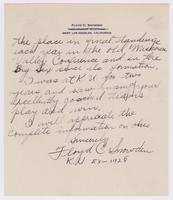 FLOYD C. SNOWDEN
WEST LOS ANGELES, CALIFORNIA
the place in final standings
each year in the old Missouri
Valley Conference and in the
Big Six since its formation.
I was at K U for two
years and saw many of your
excellently coached teams
play and win.
I will appreciate the
complete information on this
Sincerely
Floyd C. Snowden
K.U. Ex-1928